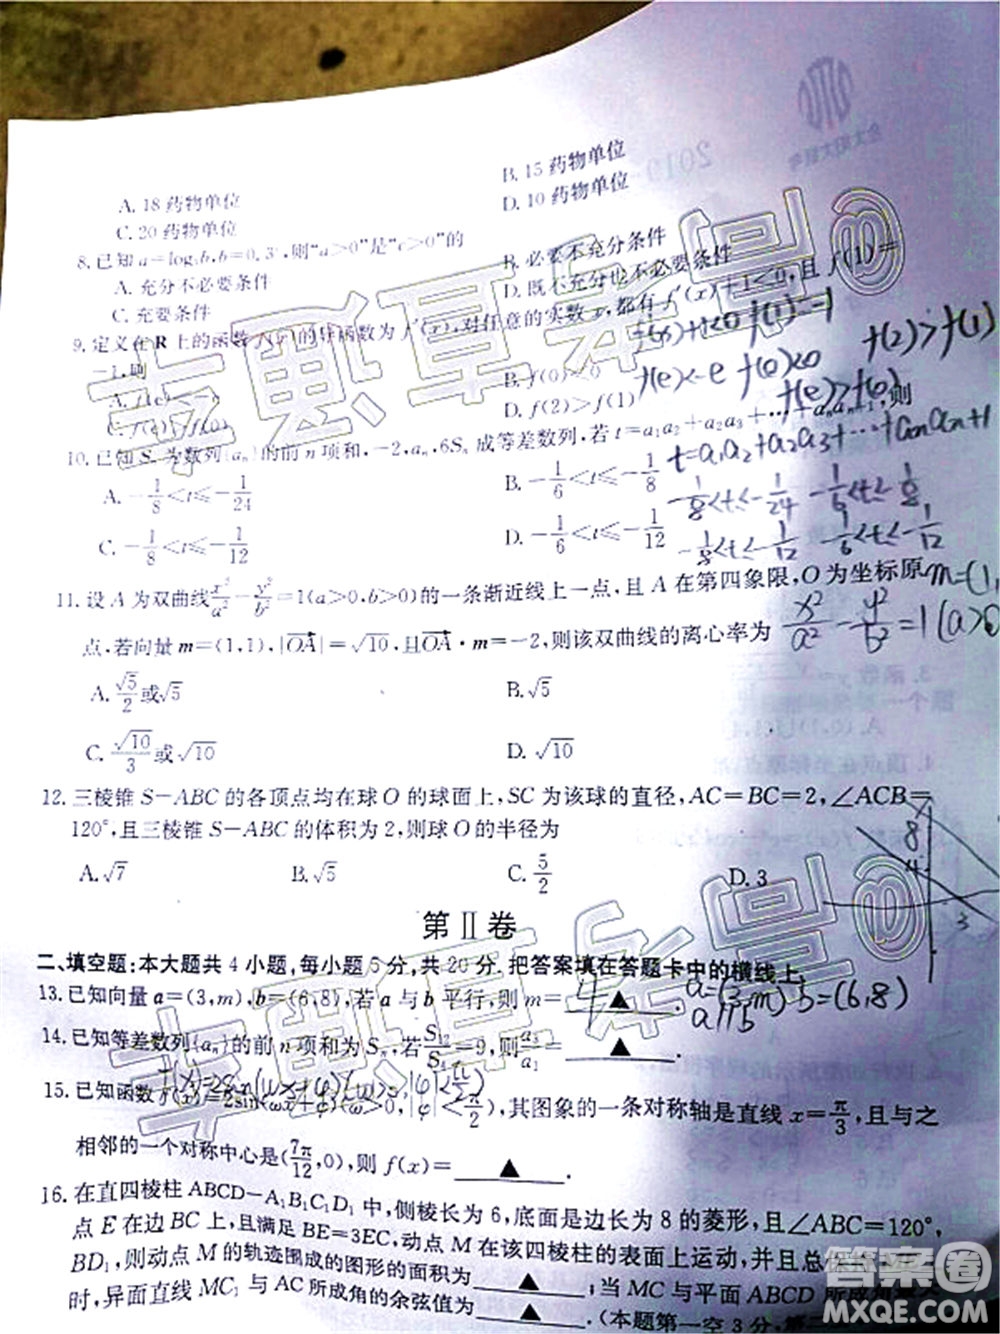 A. 18 药物单位
B. 15 药物单位
C. 20 药物单位
D. 10 药物单位
8. 已知 a=log₃b, b=0.3ᶜ, 则“a>0”是“c>0”的
A. 充分不必要条件
B. 必要不充分条件
C. 充要条件
D. 既不充分也不必要条件
9. 定义在 R 上的函数 f(x) 的导函数为 f′(x), 对任意的实数 x, 都有 f′(x)+1<0, 且 f(1)=
−1, 则
B. f(0)<0
C. f(e)>f(0)
D. f(2)>f(1)
f(x)+1<0 f(1)=-1
f(e)<-e f(0)<0 f(2)>f(1)
f(e)>f(0)
10. 已知 Sₙ 为数列{aₙ}的前 n 项和, −2, aₙ, 6Sₙ 成等差数列, 若 t=a₁a₂+a₂a₃+⋯+aₙaₙ₊₁, 则
t=a₁a₂+a₂a₃+⋯+aₙaₙ+1
A. −1/8<t≤−1/24
B. −1/6<t≤−1/8
-1/8<t≤-1/24 -1/6<t≤-1/8
C. −1/8<t≤−1/12
D. −1/6<t≤−1/12
-1/8<t≤-1/12 -1/6<t≤-1/12
11. 设 A 为双曲线 x²/a²−y²/b²=1(a>0,b>0)的一条渐近线上一点, 且 A 在第四象限, O 为坐标原
m=(1,
点, 若向量 m=(1,1), |OA|=√10, 且OA·m=−2, 则该双曲线的离心率为
x²/a²-y²/b²=1(a>0
A. √5/2或√5
B. √5
C. √10/3或√10
D. √10
12. 三棱锥 S−ABC 的各顶点均在球 O 的球面上, SC 为该球的直径, AC=BC=2, ∠ACB=
120°, 且三棱锥 S−ABC 的体积为 2, 则球 O 的半径为
A. √7
B. √5
C. 5/2
D. 3
8
4
3
第Ⅱ卷
二、填空题:本大题共 4 小题, 每小题 5 分, 共 20 分. 把答案填在答题卡中的横线上.
13. 已知向量 a=(3,m), b=(6,8), 若 a 与 b 平行, 则 m= 4 ▲ .
a=(3,m) b=(6,8)
a//b
14. 已知等差数列{aₙ}的前 n 项和为 Sₙ, 若 S₁₂/S₄=9, 则 a₃/a₁= ▲ .
f(x)=2sin(ωx+φ)(ω>0,|φ|<π/2)
15. 已知函数 f(x)=2sin(ωx+φ)(ω>0,|φ|<π/2), 其图象的一条对称轴是直线 x=π/3, 且与之
相邻的一个对称中心是(7π/12,0), 则 f(x)= ▲ .
16. 在直四棱柱 ABCD−A₁B₁C₁D₁ 中, 侧棱长为 6, 底面是边长为 8 的菱形, 且∠ABC=120°,
点 E 在边 BC 上, 且满足 BE=3EC, 动点 M 在该四棱柱的表面上运动, 并且总
BD₁, 则动点 M 的轨迹围成的图形的面积为 ▲ ; 当 MC 与平面 ABCD 所成角
时, 异面直线 MC₁ 与 AC 所成角的余弦值为 ▲ . (本题第一空 3 分, 第
答案卷
MXQE.COM